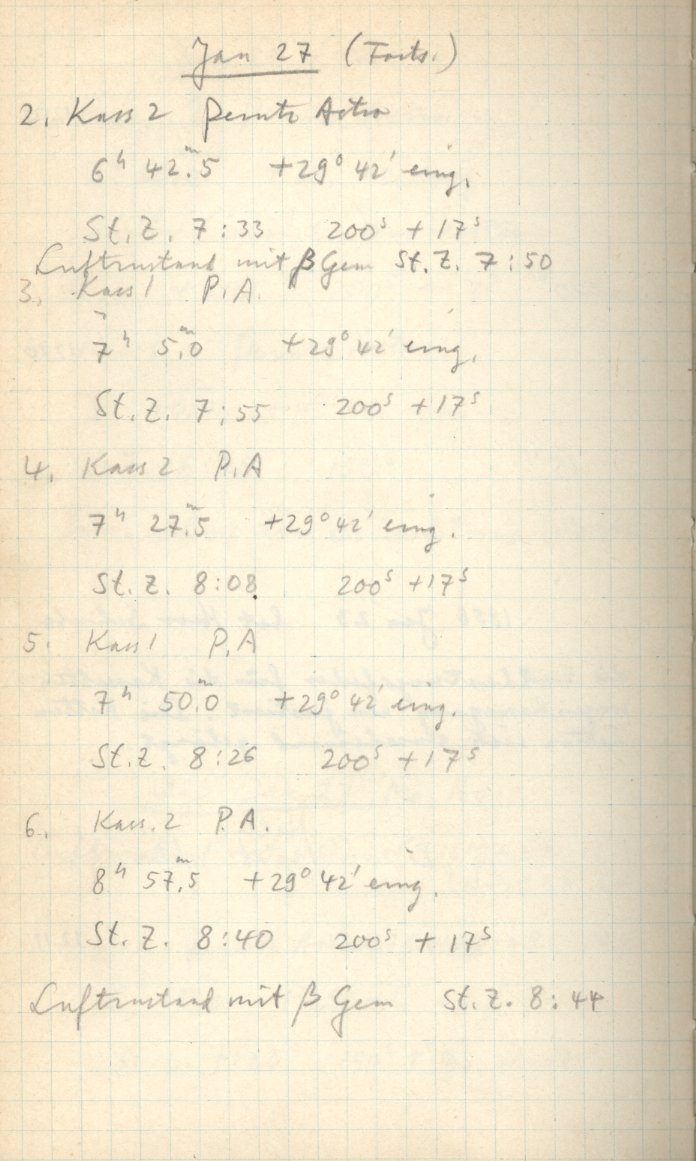 Jan 27 (Forts.)
2. Kass 2 Perutz Astro
6ʰ 42ᵐ.5 +29° 42' eing.
St. Z. 7:33 200ˢ + 17ˢ
Luftzustand mit β Gem St. Z. 7:50
3. Kass 1 P. A.
7ʰ 5ᵐ.0 +29° 42' eing.
St. Z. 7:55 200ˢ + 17ˢ
4. Kass 2 P. A
7ʰ 27ᵐ.5 +29° 42' eing.
St. Z. 8:08 200ˢ + 17ˢ
5. Kass 1 P. A
7ʰ 50ᵐ.0 +29° 42' eing.
St. Z. 8:26 200ˢ + 17ˢ
6. Kass. 2 P. A.
8ʰ 57ᵐ.5 +29° 42' eing.
St. Z. 8:40 200ˢ + 17ˢ
Luftzustand mit β Gem St. Z. 8:44